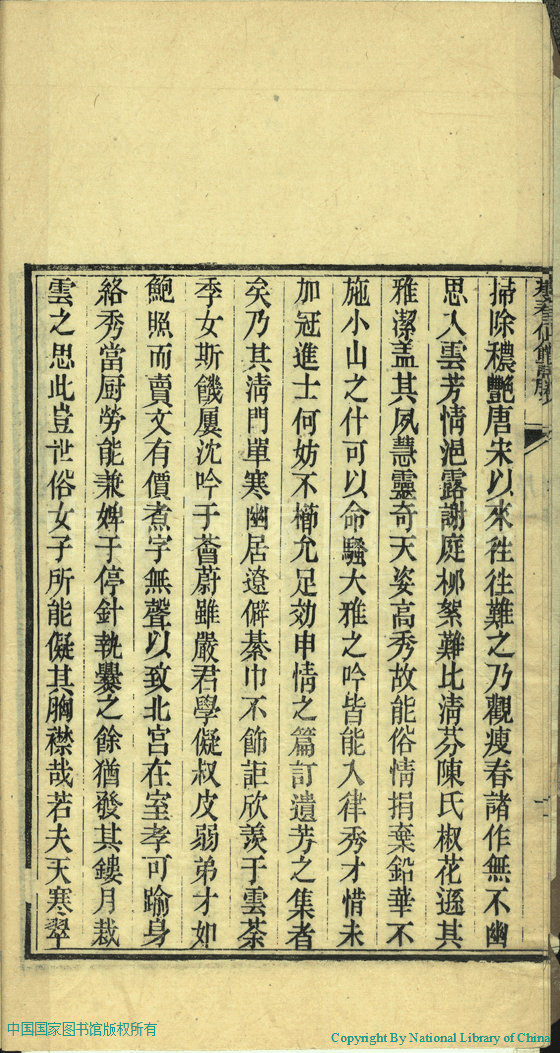 掃除穠艷唐宋以來徃徃難之乃觀瘦春諸作無不幽
思入雲芳情浥露謝庭柳絮難比淸芬陳氏椒花遜其
雅潔盖其夙慧靈奇天姿高秀故能俗情捐棄鉛華不
施小山之什可以命騷大雅之吟皆能入律秀才惜未
加冠進士何妨不櫛允足効申情之篇訂遺芳之集者
矣乃其淸門單寒幽居遼僻綦巾不飾詎欣羨于雲荼
季女斯饑屢沈吟于薈蔚雖嚴君學儗叔皮弱弟才如
鮑照而賣文有價煮字無聲以致北宮在室孝可踰身
絡秀當厨勞能兼婢于停針執爨之餘猶發其鏤月裁
雲之思此豈世俗女子所能儗其胸襟哉若夫天寒翠
中国国家图书馆版权所有
Copyright By National Library of China